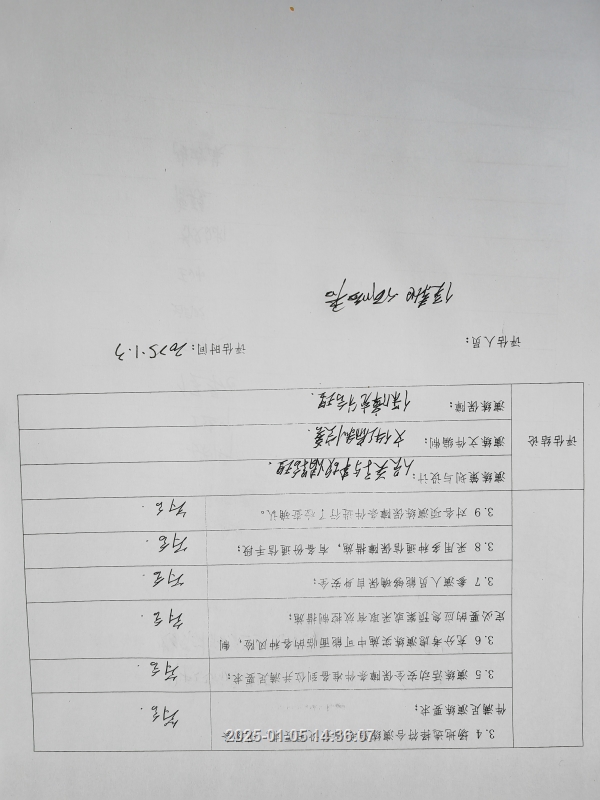 3.4 场地选择符合演练
件满足演练要求；
符合.
3.5 演练活动安全保障条件准备到位并满足要求；
符合.
3.6 充分考虑演练实施中可能面临的各种风险，制
定必要的应急预案或采取有效控制措施；
符合.
3.7 参演人员能够确保自身安全；
符合.
3.8 采用多种通信保障措施，有备份通信手段；
符合.
3.9 对各项演练保障条件进行了检查确认。
符合.
评估结论
演练策划与设计：
演练文件编制：
演练保障：
评估人员：
评估时间：2025.1.3
2025-01-05 14:36:07